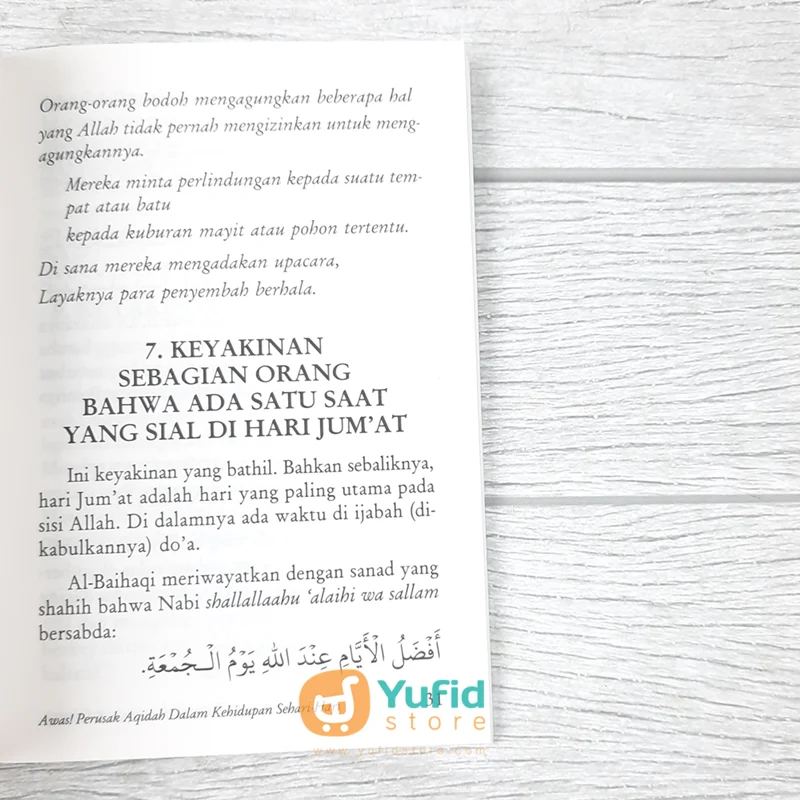 Orang-orang bodoh mengagungkan beberapa hal
yang Allah tidak pernah mengizinkan untuk meng-
agungkannya.
Mereka minta perlindungan kepada suatu tem-
pat atau batu
kepada kuburan mayit atau pohon tertentu.
Di sana mereka mengadakan upacara,
Layaknya para penyembah berhala.
7. KEYAKINAN
SEBAGIAN ORANG
BAHWA ADA SATU SAAT
YANG SIAL DI HARI JUM’AT
Ini keyakinan yang bathil. Bahkan sebaliknya,
hari Jum’at adalah hari yang paling utama pada
sisi Allah. Di dalamnya ada waktu di ijabah (di-
kabulkannya) do’a.
Al-Baihaqi meriwayatkan dengan sanad yang
shahih bahwa Nabi shallallaahu ‘alaihi wa sallam
bersabda:
أَفْضَلُ الْأَيَّامِ عِنْدَ اللهِ يَوْمُ الْـجُمْعَةِ.
Awas! Perusak Aqidah Dalam Kehidupan Sehari-Hari 31
Yufid
store
www.yufidstore.com